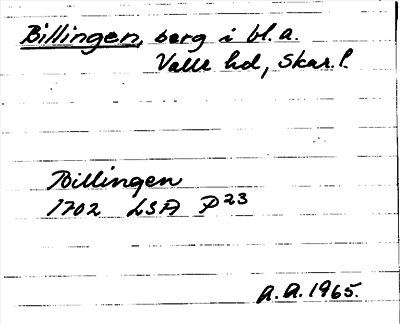 Billingen, berg i bl.a.
Valle hd, Skar.l.
Billingen
1702 LSA P23
A.A.1965.